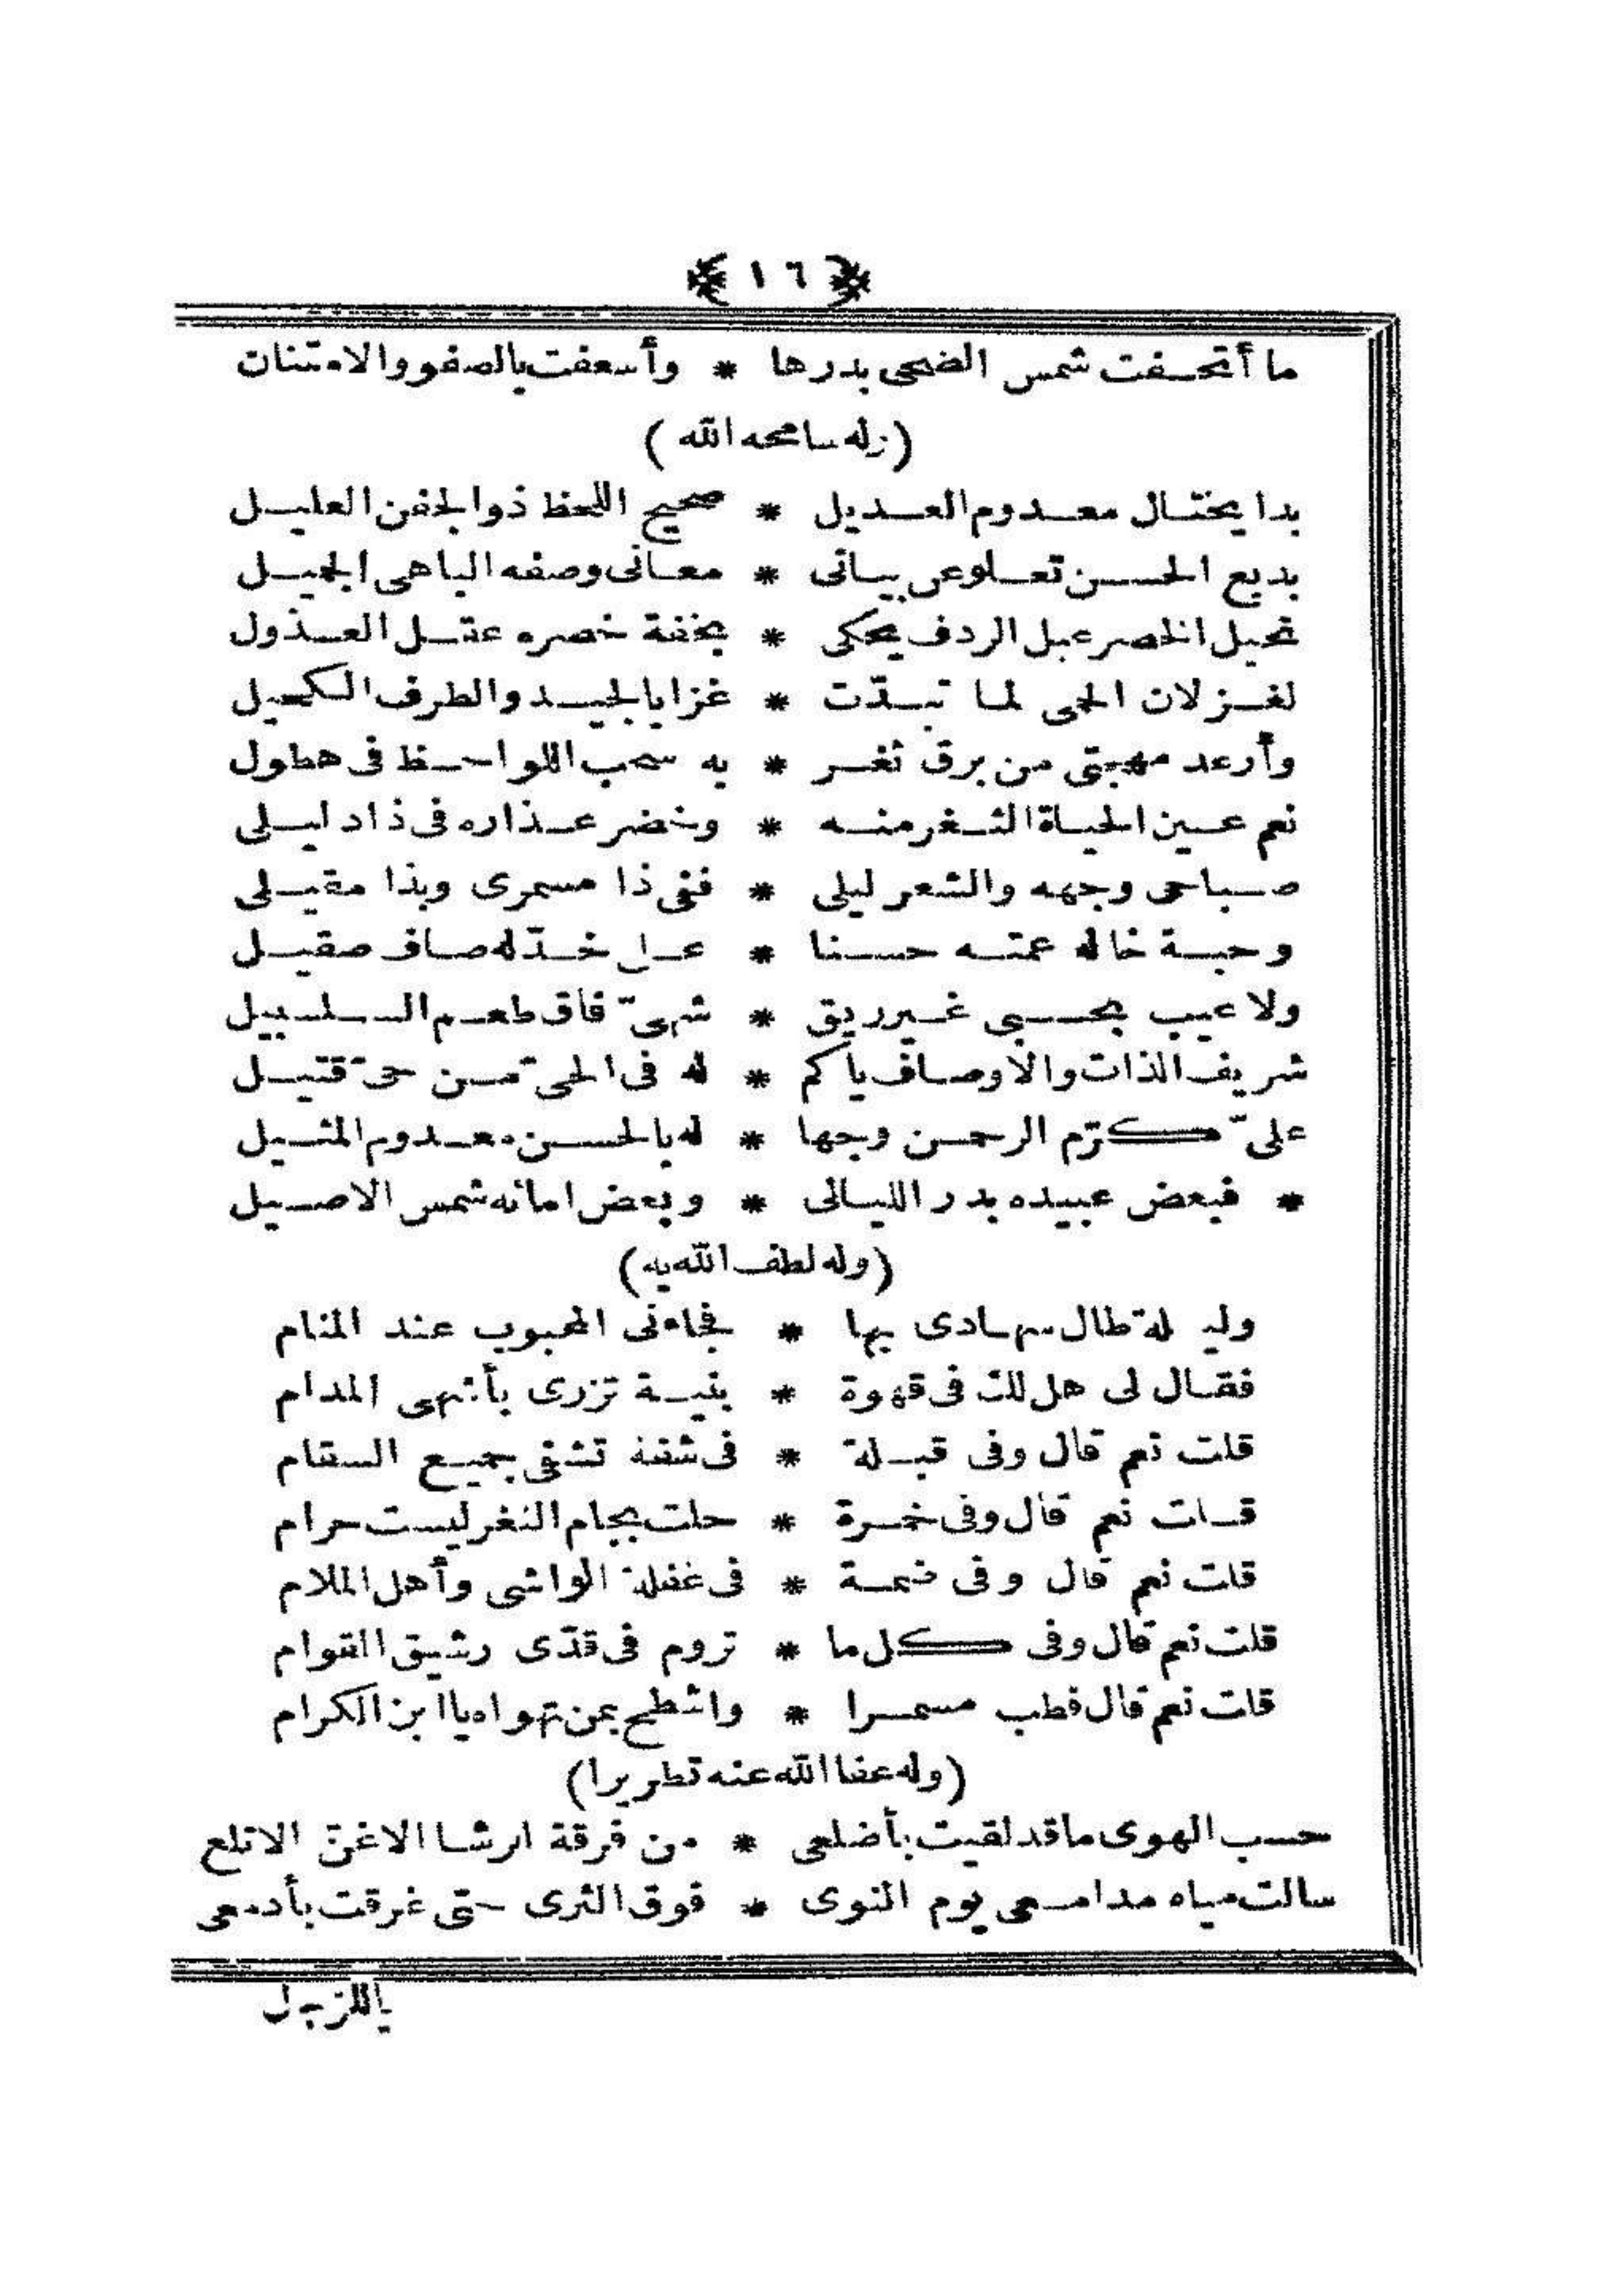 ﴿ ١٦ ﴾
ما أتحفت شمس الضحى بدرها * وأسعفت بالصفو والامتنان
(وله سامحه الله)
بدا يختال معدوم العديل * صحيح اللحظ ذو الجفن العليل
بديع الحسن تعلو عن بيانى * معانى وصفه الباهى الجميل
نحيل الخصر عبل الردف يحكى * بخفة خصره عقل العذول
لغزلان الحمى لما تبدّت * غزا بالجيد والطرف الكحيل
وأرعد مهجتى من برق ثغر * به سحب اللواحظ فى هطول
نعم عين الحياة الثغر منه * وخضر عذاره فى ذا دليلى
صباحى وجهه والشعر ليلى * ففى ذا مسمرى وبذا مقيلى
وحبة خاله عمته حسنا * على خدّ له صاف صقيل
ولا عيب بحسبى غير ريق * شهىّ فاق طعم السلسبيل
شريف الذات والاوصاف يا كم * له فى الحىّ من حىّ قتيل
علىّ كرّم الرحمن وجها * له بالحسن معدوم المثيل
* فبعض عبيده بدر الليالى * وبعض امائه شمس الاصيل
(وله لطف الله به)
وليلة طال سهادى بها * فجاءنى المحبوب عند المنام
فقال لى هل لك فى قهوة * بنية تزرى بأشهى المدام
قلت نعم قال وفى قبلة * فى شفة تشفى جميع السقام
قلت نعم قال وفى خمرة * حلت بجام الثغر ليست حرام
قلت نعم قال وفى ضمة * فى غفلة الواشى وأهل الملام
قلت نعم قال وفى كل ما * تروم فى قدّى رشيق القوام
قلت نعم قال فطب مسمرا * واشطح بمن تهواه يا ابن الكرام
(وله عفا الله عنه تطريزا)
حسب الهوى ما قد لقيت بأضلعى * من فرقة الرشا الاغنّ الاتلع
سالت مياه مدامعى يوم النوى * فوق الثرى حتى غرقت بأدمعى
باللرجال